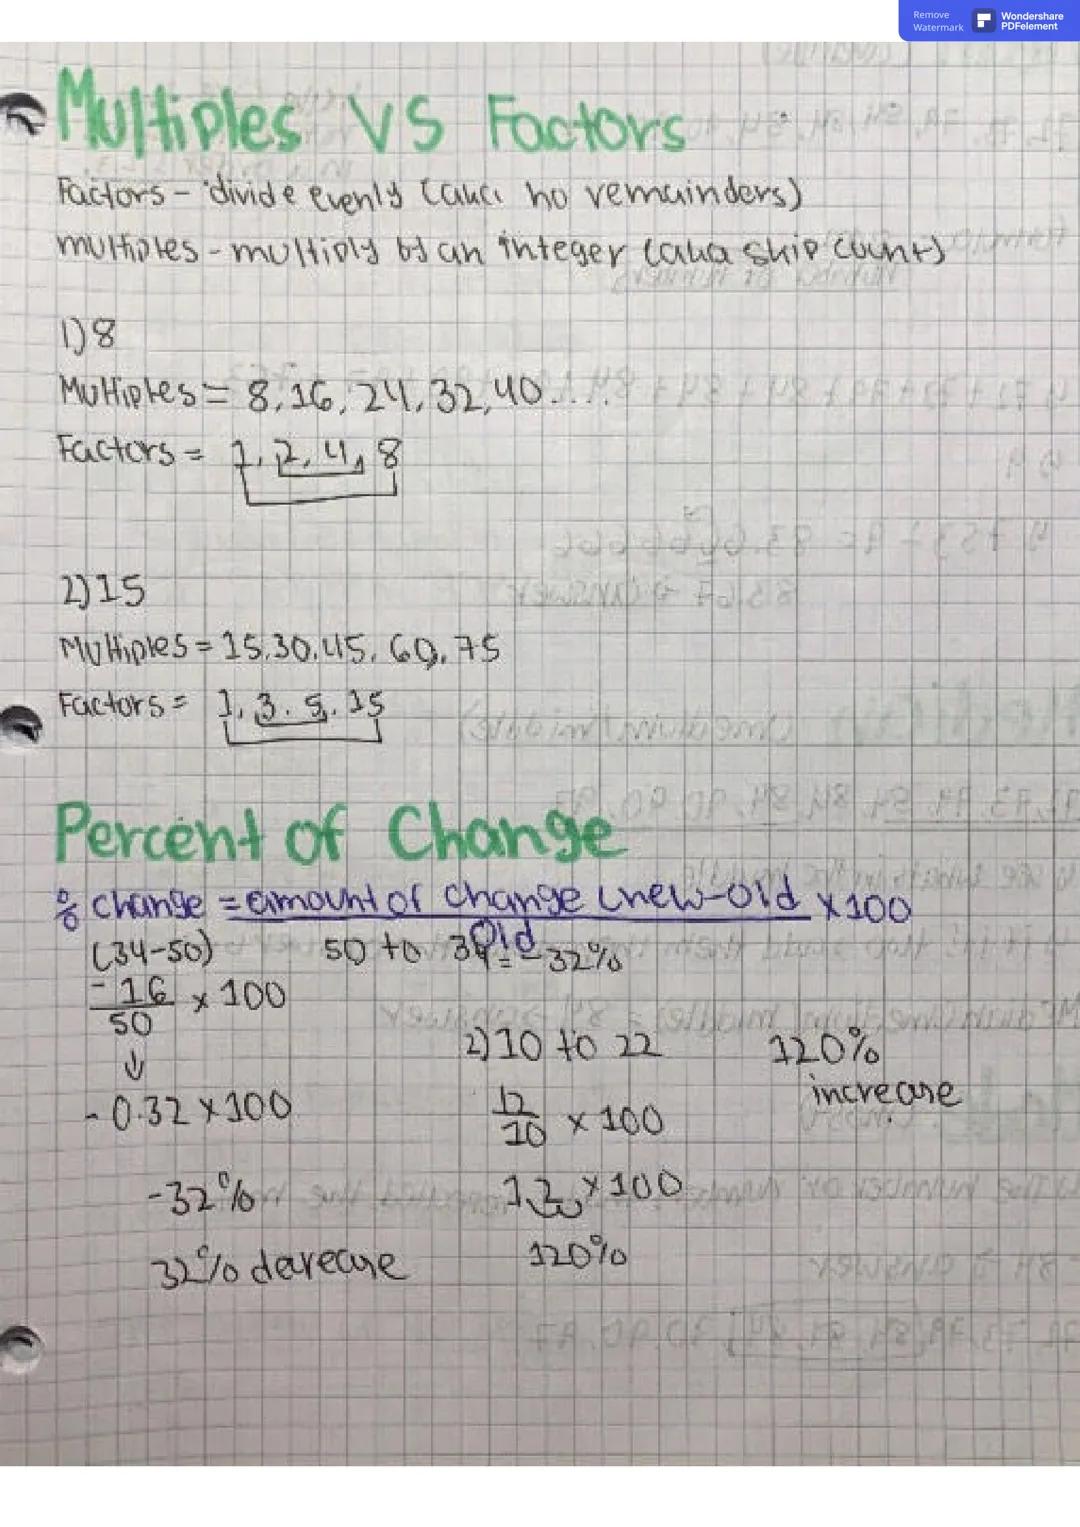 Remove Watermark
Wondershare PDFelement
Multiples VS Factors
Factors - divide evenly (aka no remainders)
multiples - multiply by an integer (aka skip count)
1) 8
Multiples = 8, 16, 24, 32, 40....
Factors = 1, 2, 4, 8
2) 15
Multiples = 15, 30, 45, 60, 75
Factors = 1, 3, 5, 15
Percent of Change
% change = amount of change (new-old × 100
Old
(34-50) 50 to 34 = -32%
-16 × 100
50
↓
2) 10 to 22 120%
increase
-0.32 × 100
12 × 100
10
-32% 1.2 × 100
32% decrease 120%